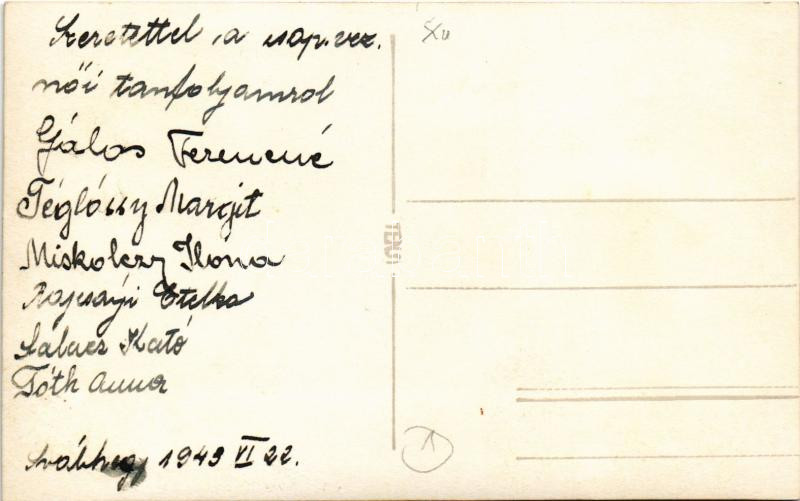 Szeretettel a csop.vez.
női tanfolyamról
Gálos Ferencné
Téglássy Margit
Miskolczy Ilona
Etelka
Kató
Tóth Anna
Svábhegy, 1949 VI 22.
1